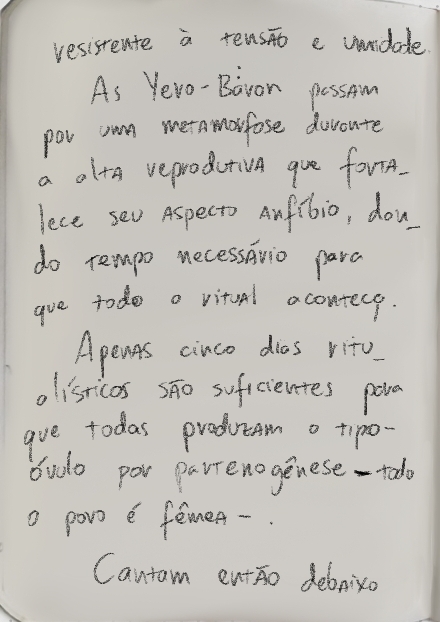 resistente à tensão e umidade.
As Yevo-Bávon passam
por uma metamorfose durante
a alta reprodutiva que forta_
lece seu aspecto anfíbio, dan_
do tempo necessário para
que todo o ritual aconteça.
Apenas cinco dias ritu_
alísticos são suficientes para
que todas produzam o tipo-
óvulo por partenogênese - todo
o povo é fêmea - .
Cantam então debaixo